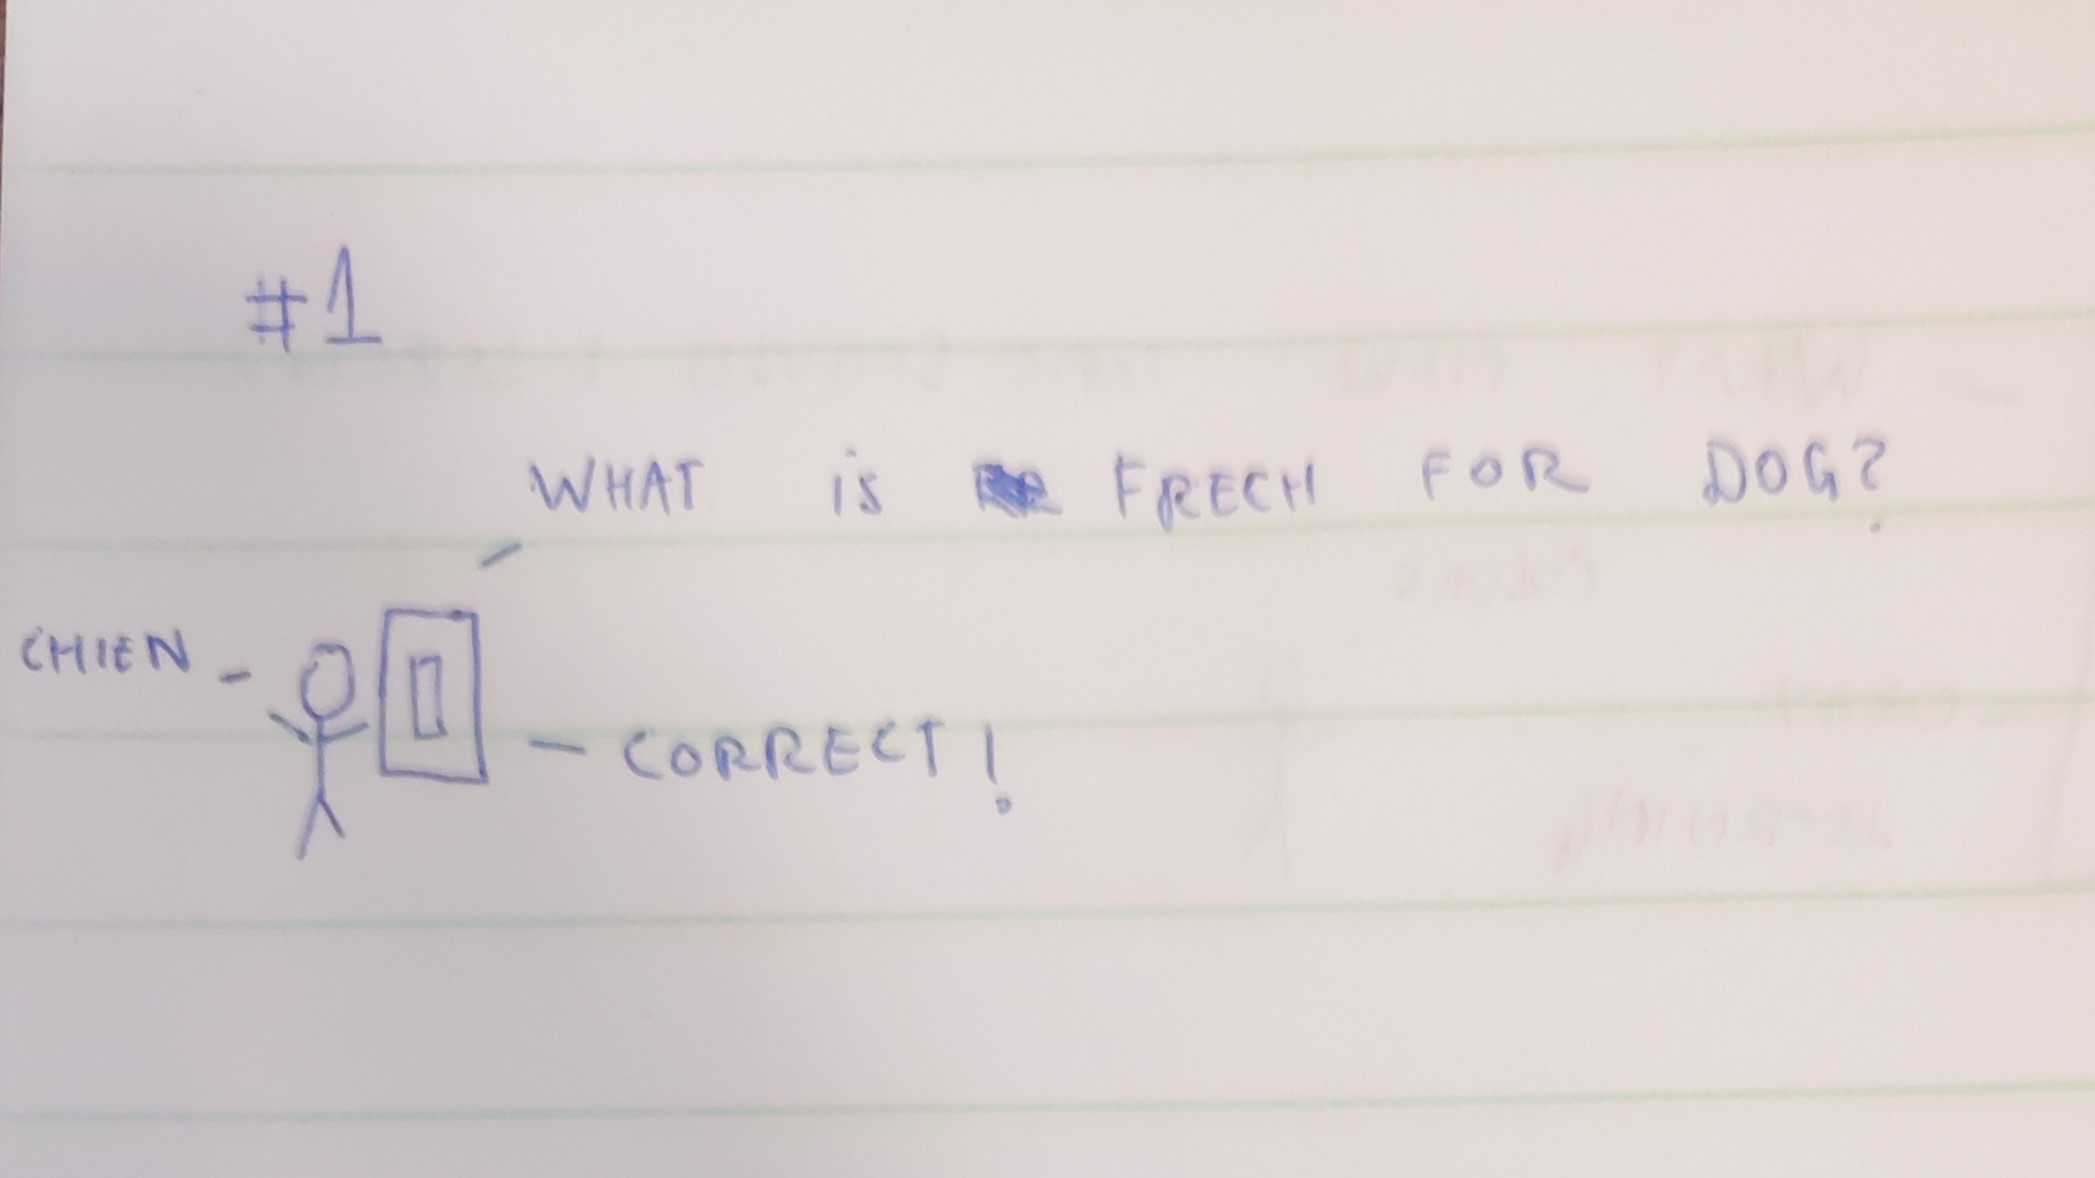 #1
WHAT iS FRECH FOR DOG?
CHIEN -
- CORRECT!